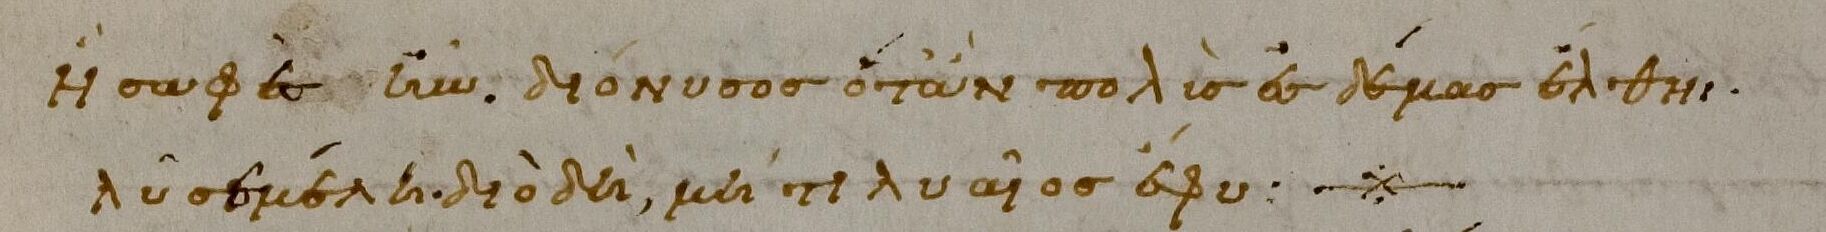 Ἢ σαφὲς εἴπω. διόνυσος ὅτὰν πολὺς ἐς δέμας ἔλθηι.
λῦσε μέλη. διὸ δὴ, μή τι λυαῖος ἔφυ: